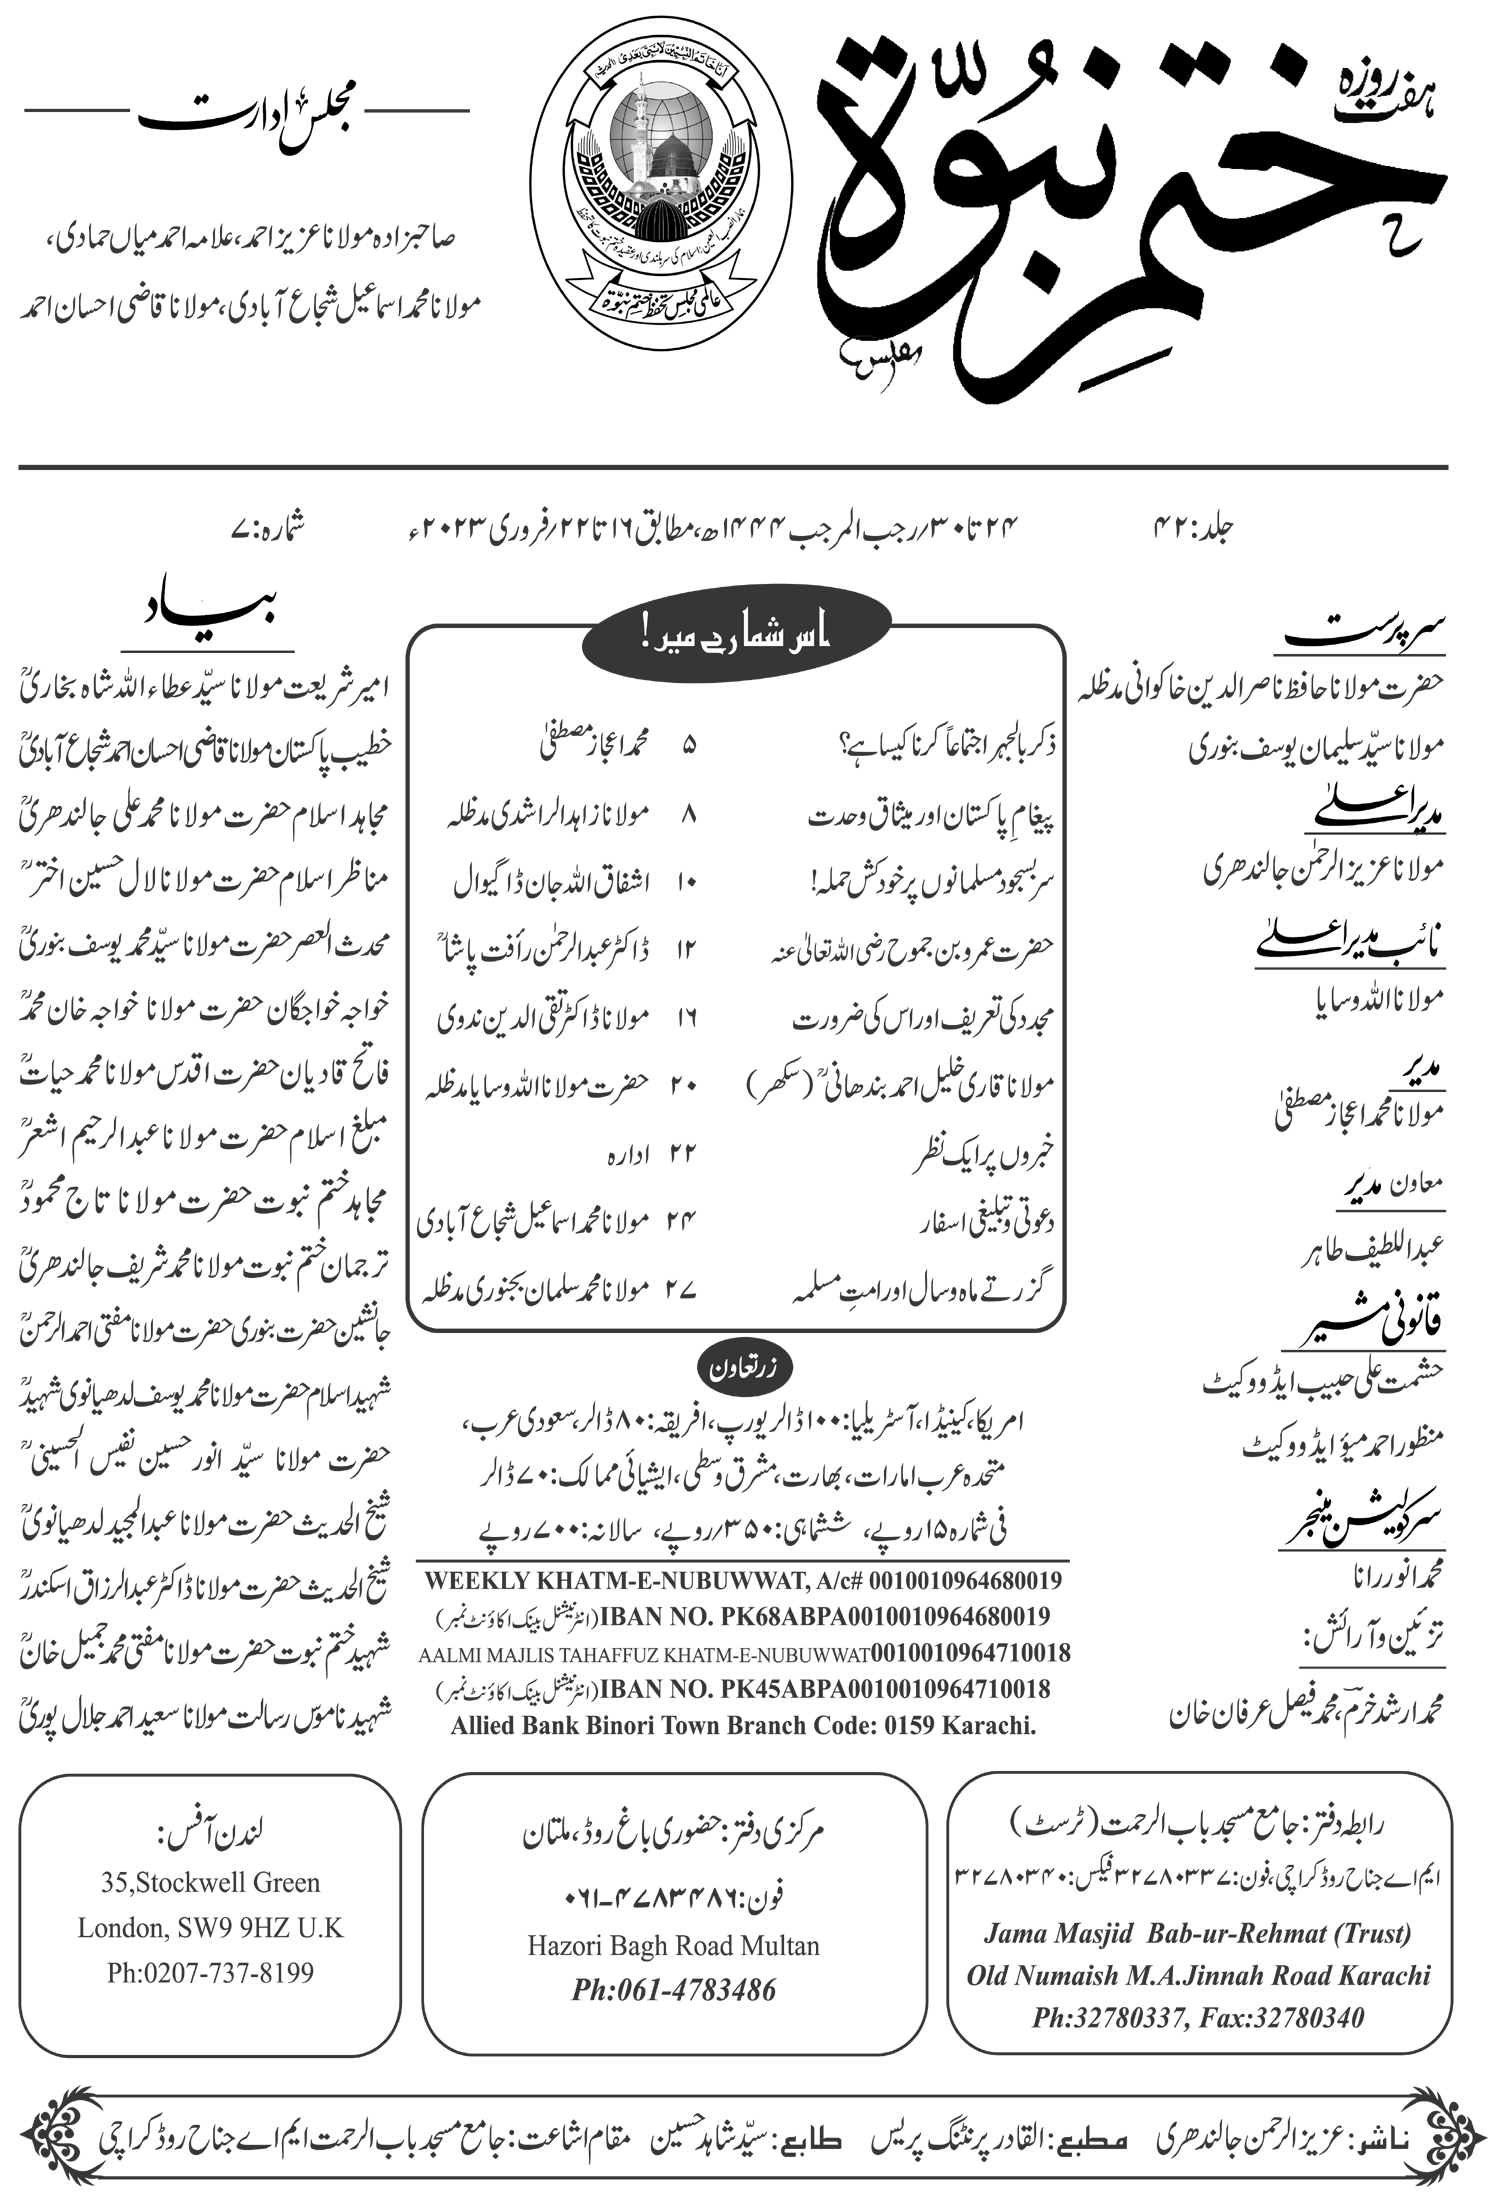 ہفت روزہ
ختم نبوّۃ
انا خاتم النبیین لا نبی بعدی
عالمی مجلس تحفظ ختم نبوّۃ
مجلس ادارت
صاحبزادہ مولانا عزیز احمد، علامہ احمد میاں حمادی،
مولانا محمد اسماعیل شجاع آبادی، مولانا قاضی احسان احمد
جلد: ۴۲
۲۴ تا ۳۰؍ رجب المرجب ۱۴۴۴ھ، مطابق ۱۶ تا ۲۲؍ فروری ۲۰۲۳ء
شمارہ: ۷
سرپرست
حضرت مولانا حافظ ناصر الدین خاکوانی مدظلہ
مولانا سیّد سلیمان یوسف بنوری
مدیر اعلیٰ
مولانا عزیز الرحمٰن جالندھری
نائب مدیر اعلیٰ
مولانا اللہ وسایا
مدیر
مولانا محمد اعجاز مصطفیٰ
معاون مدیر
عبداللطیف طاہر
قانونی مشیر
حشمت علی حبیب ایڈووکیٹ
منظور احمد میؤ ایڈووکیٹ
سرکولیشن مینجر
محمد انور رانا
تزئین و آرائش:
محمد ارشد خرم، محمد فیصل عرفان خان
اس شمارے میں!
ذکر بالجہر اجتماعاً کرنا کیسا ہے؟ ۵ محمد اعجاز مصطفیٰ
پیغامِ پاکستان اور میثاق وحدت ۸ مولانا زاہد الراشدی مدظلہ
سر بسجود مسلمانوں پر خودکش حملہ! ۱۰ اشفاق اللہ جان ڈاگیوال
حضرت عمرو بن جموح رضی اللہ تعالیٰ عنہ ۱۲ ڈاکٹر عبدالرحمٰن رأفت پاشاؒ
مجدد کی تعریف اور اس کی ضرورت ۱۶ مولانا ڈاکٹر تقی الدین ندوی
مولانا قاری خلیل احمد بندھانیؒ (سکھر) ۲۰ حضرت مولانا اللہ وسایا مدظلہ
خبروں پر ایک نظر ۲۲ ادارہ
دعوتی و تبلیغی اسفار ۲۴ مولانا محمد اسماعیل شجاع آبادی
گزرتے ماہ و سال اور امتِ مسلمہ ۲۷ مولانا محمد سلمان بجنوری مدظلہ
زر تعاون
امریکا، کینیڈا، آسٹریلیا: ۱۰۰ ڈالر یورپ، افریقہ: ۸۰ ڈالر، سعودی عرب،
متحدہ عرب امارات، بھارت، مشرق وسطی، ایشیائی ممالک: ۷۰ ڈالر
فی شمارہ ۱۵ روپے، ششماہی: ۳۵۰؍ روپے، سالانہ: ۷۰۰ روپے
WEEKLY KHATM-E-NUBUWWAT, A/c# 0010010964680019
IBAN NO. PK68ABPA0010010964680019 (انٹرنیشنل بینک اکاؤنٹ نمبر)
AALMI MAJLIS TAHAFFUZ KHATM-E-NUBUWWAT 0010010964710018
IBAN NO. PK45ABPA0010010964710018 (انٹرنیشنل بینک اکاؤنٹ نمبر)
Allied Bank Binori Town Branch Code: 0159 Karachi.
بیاد
امیر شریعت مولانا سیّد عطاء اللہ شاہ بخاریؒ
خطیب پاکستان مولانا قاضی احسان احمد شجاع آبادیؒ
مجاہد اسلام حضرت مولانا محمد علی جالندھریؒ
مناظر اسلام حضرت مولانا لال حسین اخترؒ
محدث العصر حضرت مولانا سیّد محمد یوسف بنوریؒ
خواجہ خواجگان حضرت مولانا خواجہ خان محمدؒ
فاتح قادیان حضرت اقدس مولانا محمد حیاتؒ
مبلغ اسلام حضرت مولانا عبدالرحیم اشعرؒ
مجاہد ختم نبوت حضرت مولانا تاج محمودؒ
ترجمان ختم نبوت مولانا محمد شریف جالندھریؒ
جانشین حضرت بنوری حضرت مولانا مفتی احمد الرحمنؒ
شہید اسلام حضرت مولانا محمد یوسف لدھیانوی شہیدؒ
حضرت مولانا سیّد انور حسین نفیس الحسینیؒ
شیخ الحدیث حضرت مولانا عبدالمجید لدھیانویؒ
شیخ الحدیث حضرت مولانا ڈاکٹر عبدالرزاق اسکندرؒ
شہید ختم نبوت حضرت مولانا مفتی محمد جمیل خانؒ
شہید ناموس رسالت مولانا سعید احمد جلال پوریؒ
رابطہ دفتر: جامع مسجد باب الرحمت (ٹرسٹ)
ایم اے جناح روڈ کراچی، فون: ۳۲۷۸۰۳۳۷ فیکس: ۳۲۷۸۰۳۴۰
Jama Masjid Bab-ur-Rehmat (Trust)
Old Numaish M.A.Jinnah Road Karachi
Ph:32780337, Fax:32780340
مرکزی دفتر: حضوری باغ روڈ، ملتان
فون: ۰۶۱-۴۷۸۳۴۸۶
Hazori Bagh Road Multan
Ph:061-4783486
لندن آفس:
35,Stockwell Green
London, SW9 9HZ U.K
Ph:0207-737-8199
ناشر: عزیز الرحمن جالندھری مطبع: القادر پرنٹنگ پریس طابع: سیّد شاہد حسین مقام اشاعت: جامع مسجد باب الرحمت ایم اے جناح روڈ کراچی